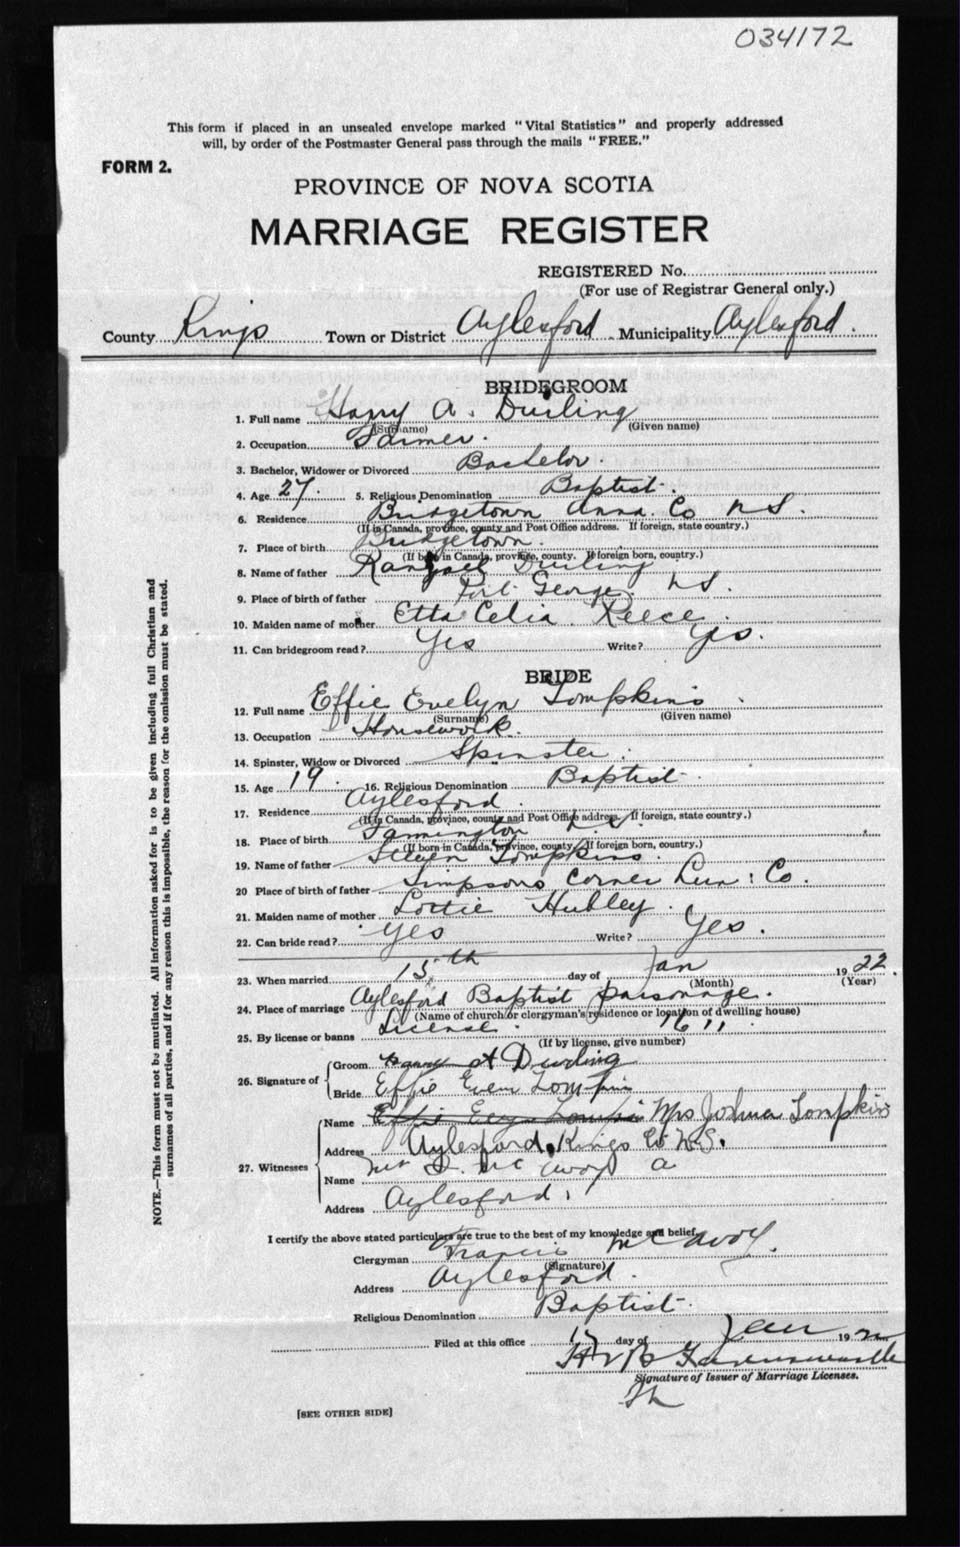 034172
This form if placed in an unsealed envelope marked "Vital Statistics" and properly addressed
will, by order of the Postmaster General pass through the mails "FREE."
FORM 2.
PROVINCE OF NOVA SCOTIA
MARRIAGE REGISTER
REGISTERED No.
(For use of Registrar General only.)
County Kings Town or District Aylesford Municipality Aylesford.
BRIDEGROOM
1. Full name Harry A. Durling
(Surname) (Given name)
2. Occupation Farmer.
3. Bachelor, Widower or Divorced Bachelor.
4. Age 27. 5. Religious Denomination Baptist.
6. Residence Bridgetown Anna. Co N S.
(If in Canada, province, county and Post Office address. If foreign, state country.)
7. Place of birth Bridgetown.
(If born in Canada, province, county. If foreign born, country.)
8. Name of father Durling
9. Place of birth of father Port George, N S.
10. Maiden name of mother Etta Celia Reece
11. Can bridegroom read? Yes Write? Yes.
BRIDE
12. Full name Effie Evelyn Tompkins
(Surname) (Given name)
13. Occupation Housework.
14. Spinster, Widow or Divorced Spinster.
15. Age 19 16. Religious Denomination Baptist.
17. Residence Aylesford.
(If in Canada, province, county and Post Office address. If foreign, state country.)
18. Place of birth Farmington N. S.
(If born in Canada, province, county. If foreign born, country.)
19. Name of father Tompkins.
20 Place of birth of father Simpsons Corner Lun: Co.
21. Maiden name of mother Lottie Hubley.
22. Can bride read? Yes Write? Yes.
23. When married 15th day of Jan 1922.
(Month) (Year)
24. Place of marriage Aylesford Baptist parsonage.
(Name of church or clergyman's residence or location of dwelling house)
25. By license or banns License. 1611
(If by license, give number)
26. Signature of Groom Harry A Durling
Bride Effie Tompkins
27. Witnesses Name Mrs Joshua Tompkins
Address Aylesford, Kings Co N.S.
Name
Address Aylesford.
I certify the above stated particulars are true to the best of my knowledge and belief.
Clergyman Francis McAvoy.
(Signature)
Address Aylesford.
Religious Denomination Baptist.
Filed at this office 17 day of Jan 192
Signature of Issuer of Marriage Licenses.
[SEE OTHER SIDE]
NOTE.—This form must not be mutilated. All information asked for is to be given including full Christian and
surnames of all parties, and if for any reason this is impossible, the reason for the omission must be stated.